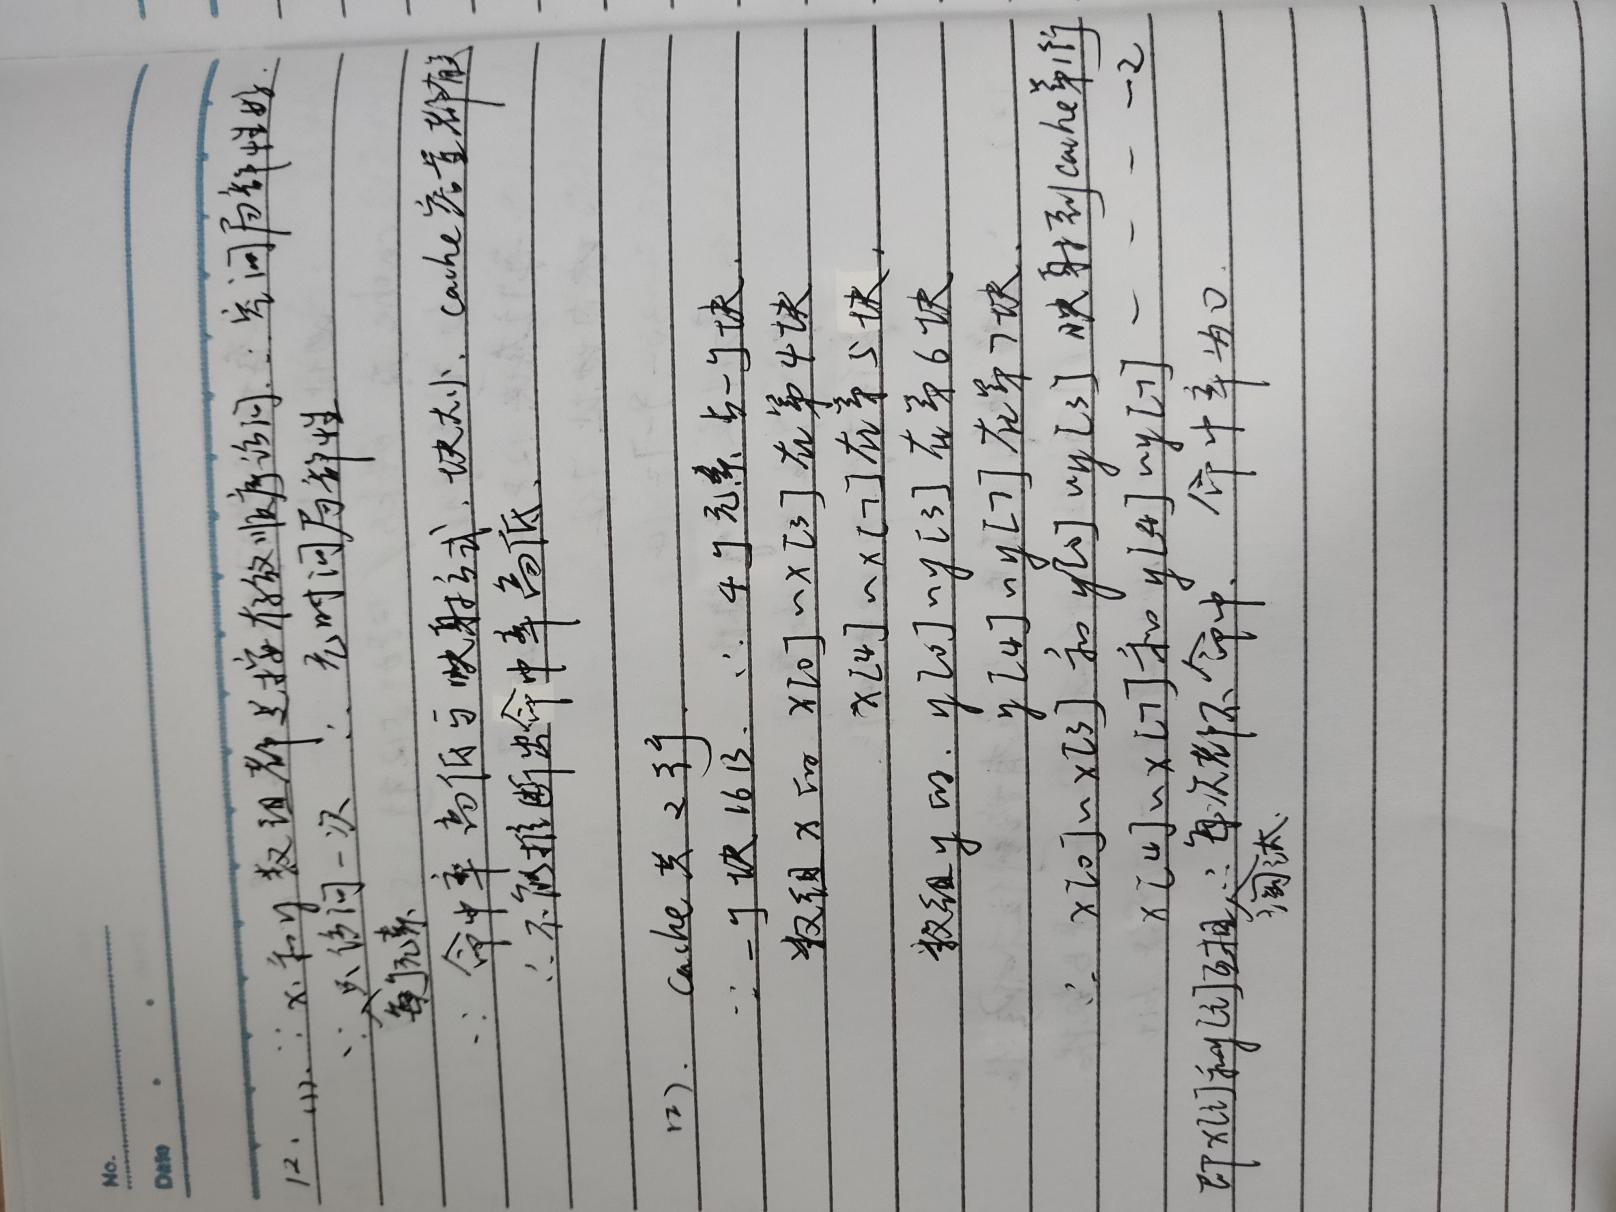 No.
Date
12. (1). ∵ x和y数组都是按存放顺序访问. ∴ 空间局部性好.
∵ 只访问一次 ∴ 无时间局部性
每个元素
∵ 命中率高低与映射方式、块大小、cache容量都有
∴ 不能推断出命中率高低、
(2). Cache共2行
∵ 一块16B. ∴ 4个元素占一个块.
数组x中 x[0]~x[3]在第4块
x[4]~x[7]在第5块,
数组y中. y[0]~y[3]在第6块
y[4]~y[7]在第7块.
∴ x[0]~x[3]和y[0]~y[3]映射到cache第1行
x[4]~x[7]和y[4]~y[7] - - - - 2
即x[i]和y[i]互相 ∴ 每次都不命中. 命中率为0.
淘汰.